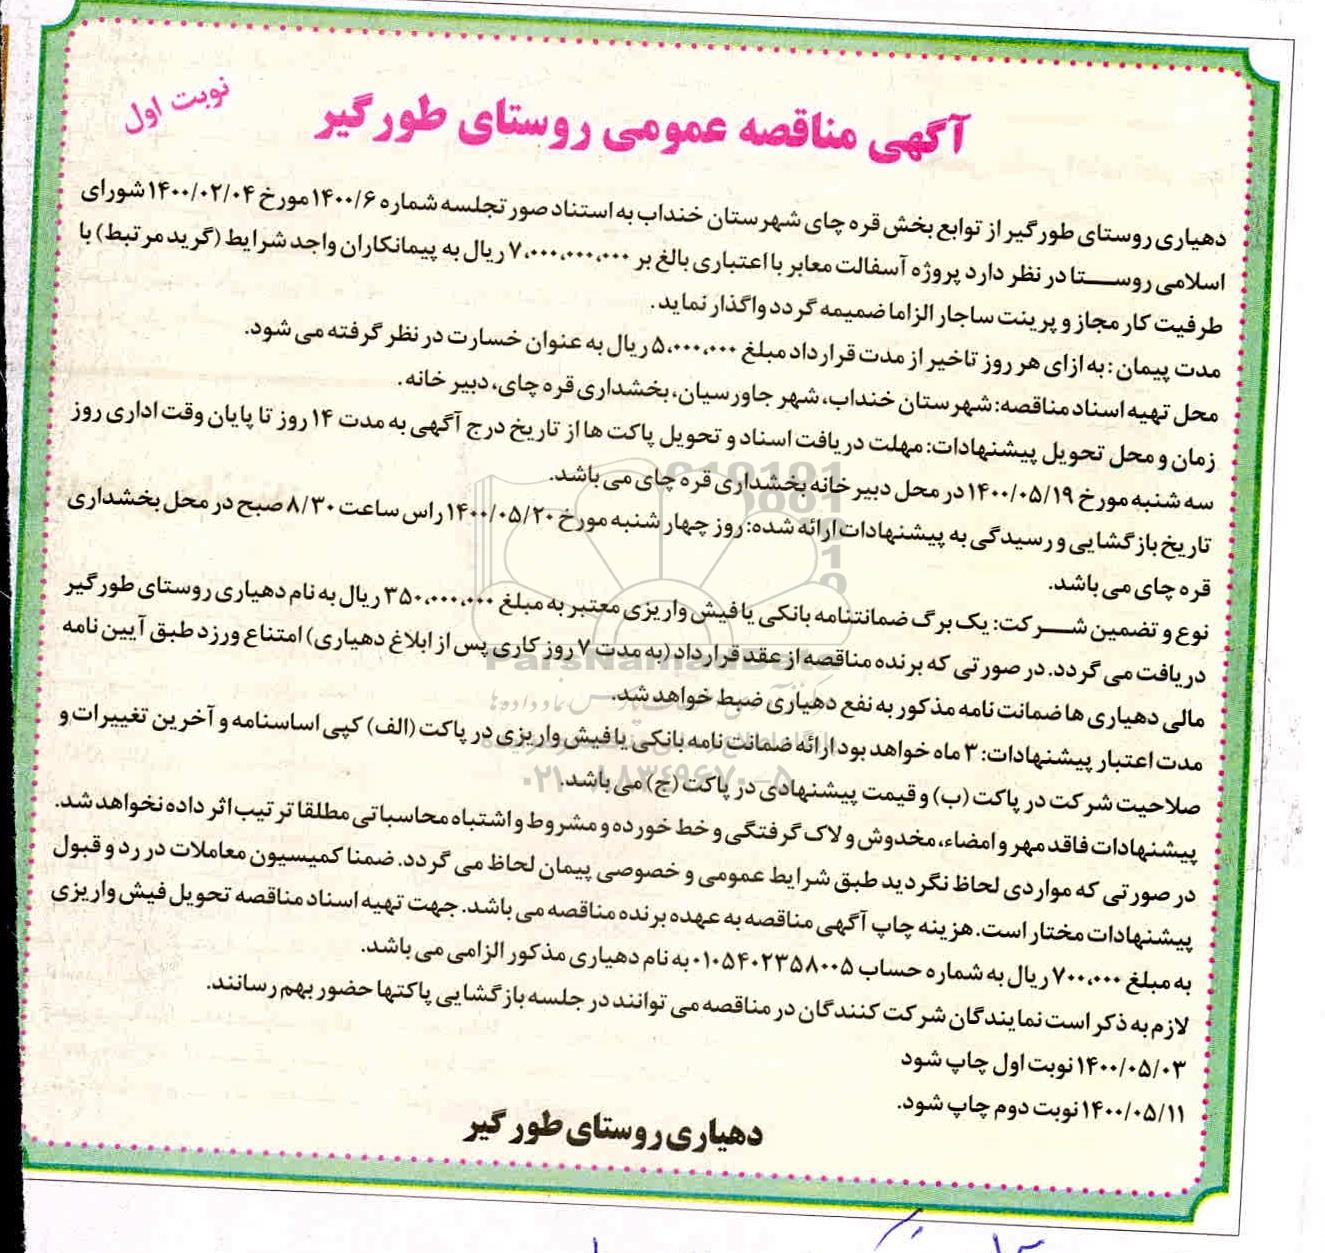 نوبت اول
آگهی مناقصه عمومی روستای طورگیر
دهیاری روستای طورگیر از توابع بخش قره چای شهرستان خنداب به استناد صورتجلسه شماره ۱۴۰۰/۶ مورخ ۱۴۰۰/۰۲/۰۴ شورای
اسلامی روستا در نظر دارد پروژه آسفالت معابر با اعتباری بالغ بر ۷،۰۰۰،۰۰۰،۰۰۰ ریال به پیمانکاران واجد شرایط (گرید مرتبط) با
ظرفیت کار مجاز و پرینت ساجار الزاما ضمیمه گردد واگذار نماید.
مدت پیمان: به ازای هر روز تاخیر از مدت قرارداد مبلغ ۵،۰۰۰،۰۰۰ ریال به عنوان خسارت در نظر گرفته می شود.
محل تهیه اسناد مناقصه: شهرستان خنداب، شهر جاورسیان، بخشداری قره چای، دبیر خانه.
زمان و محل تحویل پیشنهادات: مهلت دریافت اسناد و تحویل پاکت ها از تاریخ درج آگهی به مدت ۱۴ روز تا پایان وقت اداری روز
سه شنبه مورخ ۱۴۰۰/۰۵/۱۹ در محل دبیر خانه بخشداری قره چای می باشد.
تاریخ بازگشایی و رسیدگی به پیشنهادات ارائه شده: روز چهار شنبه مورخ ۱۴۰۰/۰۵/۲۰ راس ساعت ۸/۳۰ صبح در محل بخشداری
قره چای می باشد.
نوع و تضمین شرکت: یک برگ ضمانتنامه بانکی یا فیش واریزی معتبر به مبلغ ۳۵۰،۰۰۰،۰۰۰ ریال به نام دهیاری روستای طورگیر
دریافت می گردد. در صورتی که برنده مناقصه از عقد قرارداد (به مدت ۷ روز کاری پس از ابلاغ دهیاری) امتناع ورزد طبق آیین نامه
مالی دهیاری ها ضمانت نامه مذکور به نفع دهیاری ضبط خواهد شد.
مدت اعتبار پیشنهادات: ۳ ماه خواهد بود ارائه ضمانت نامه بانکی یا فیش واریزی در پاکت (الف) کپی اساسنامه و آخرین تغییرات و
صلاحیت شرکت در پاکت (ب) و قیمت پیشنهادی در پاکت (ج) می باشد.
پیشنهادات فاقد مهر و امضاء، مخدوش و لاک گرفتگی و خط خورده و مشروط و اشتباه محاسباتی مطلقا ترتیب اثر داده نخواهد شد.
در صورتی که مواردی لحاظ نگردید طبق شرایط عمومی و خصوصی پیمان لحاظ می گردد. ضمنا کمیسیون معاملات در رد و قبول
پیشنهادات مختار است. هزینه چاپ آگهی مناقصه به عهده برنده مناقصه می باشد. جهت تهیه اسناد مناقصه تحویل فیش واریزی
به مبلغ ۷۰۰،۰۰۰ ریال به شماره حساب ۰۱۰۵۴۰۲۳۵۸۰۰۵ به نام دهیاری مذکور الزامی می باشد.
لازم به ذکر است نمایندگان شرکت کنندگان در مناقصه می توانند در جلسه بازگشایی پاکتها حضور بهم رسانند.
۱۴۰۰/۰۵/۰۳ نوبت اول چاپ شود
۱۴۰۰/۰۵/۱۱ نوبت دوم چاپ شود.
دهیاری روستای طور گیر
ParsNamadData
۰۲۱-۸۸۳۴۹۶۷۰-۵